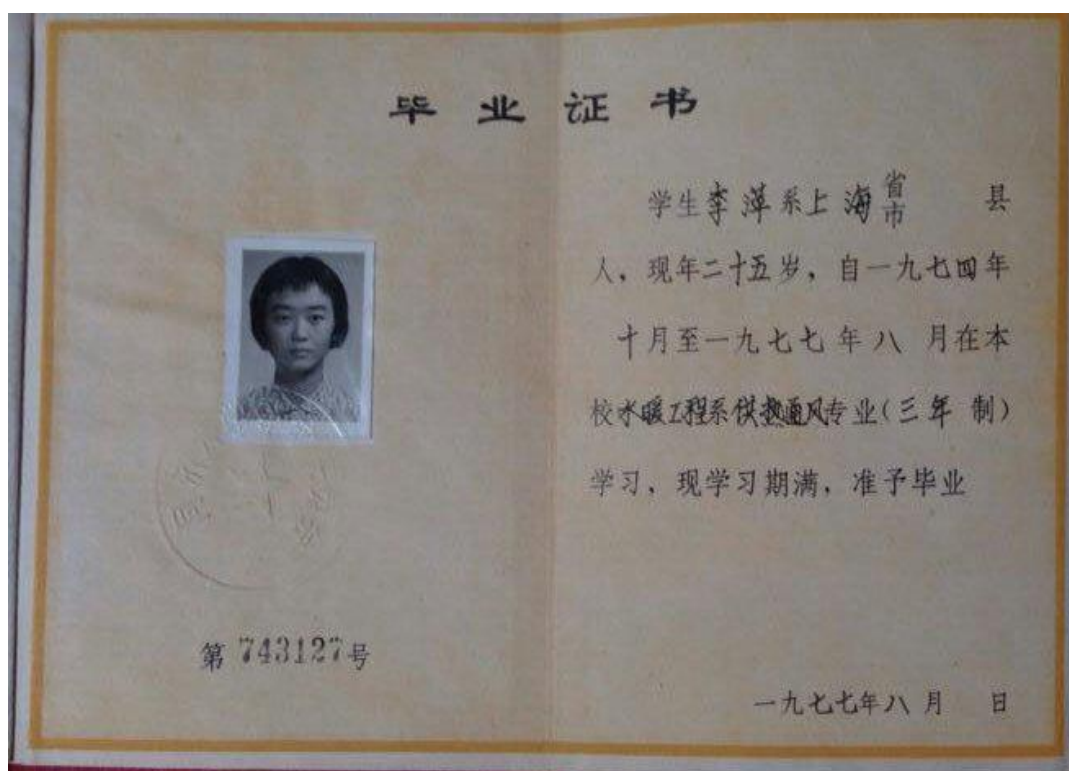 毕业证书
学生李萍系上海省市 县
人，现年二十五岁，自一九七四年
十月至一九七七年八 月在本
校水暖工程系供热通风专业（三年 制）
学习、现学习期满，准予毕业
第 743127 号
一九七七年八月 日